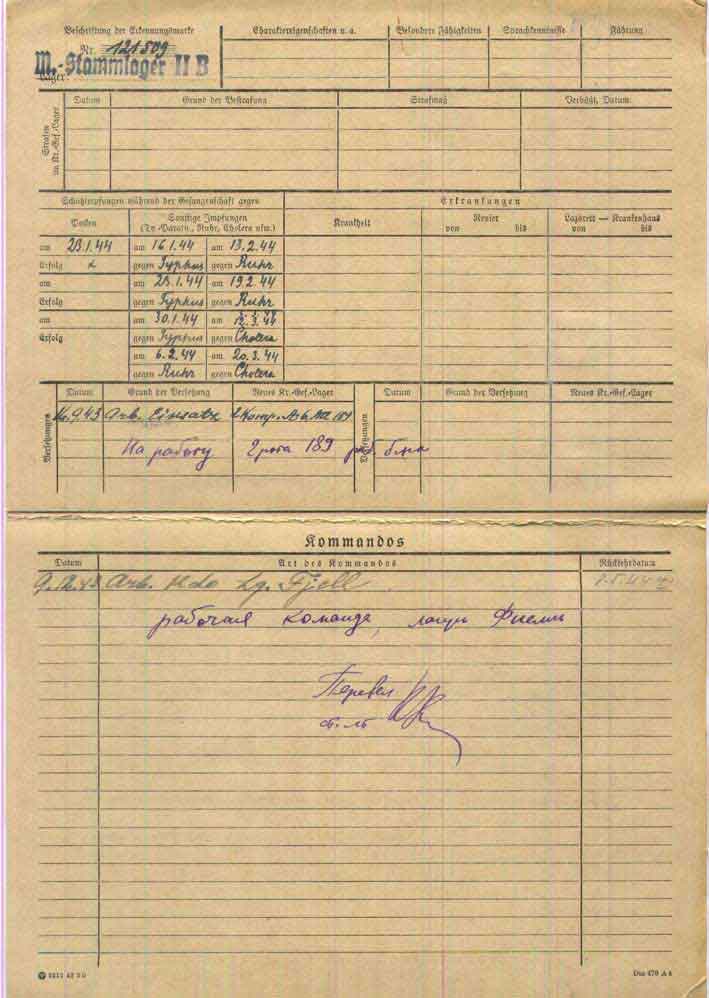 Beschriftung der Erkennungsmarke
Nr. 121509
M.-Stammlager II B
Lager:
Charaktereigenschaften u. a.
Besondere Fähigkeiten
Sprachkenntnisse
Führung
Strafen im Kr.-Gef.-Lager
Datum
Grund der Bestrafung
Strafmaß
Verbüßt, Datum
Schutzimpfungen während der Gefangenschaft gegen
Erkrankungen
Pocken
Sonstige Impfungen
(Ty. Paraty., Ruhr, Cholera usw.)
Krankheit
Revier
von bis
Lazarett — Krankenhaus
von bis
am 23.1.44 am 16.1.44 am 13.2.44
Erfolg gegen Typhus gegen Ruhr
am am 23.1.44 am 19.2.44
Erfolg gegen Typhus gegen Ruhr
am am 30.1.44 am 12.3.44
Erfolg gegen Typhus gegen Cholera
am 6.2.44 am 20.3.44
gegen Ruhr gegen Cholera
Versetzungen
Datum Grund der Versetzung Neues Kr.-Gef.-Lager
Versetzungen
Datum Grund der Versetzung Neues Kr.-Gef.-Lager
9.43 Arb. Einsatz 2 Komp. 189
На работу 2 рота 189 раб. б-на
Kommandos
Datum Art des Kommandos Rückkehrdatum
Arb. Kdo Lg. Fjell
рабочая команда, лагерь
Перевел